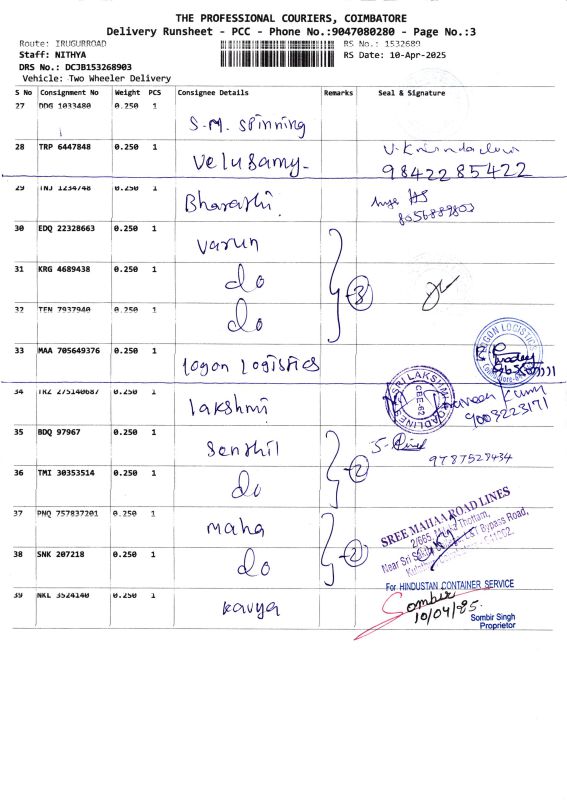 THE PROFESSIONAL COURIERS, COIMBATORE
Delivery Runsheet - PCC - Phone No.:9047080280 - Page No.:3
Route: IRUGURROAD RS No.: 1532689
Staff: NITHYA RS Date: 10-Apr-2025
DRS No.: DCJB153268903
Vehicle: Two Wheeler Delivery
S No Consignment No Weight PCS Consignee Details Remarks Seal & Signature
27 DDG 1033480 0.250 1 S.M. Spinning
28 TRP 6447848 0.250 1 Velusamy
9842285422
29 TNJ 1234748 0.250 1 Bharathi
8056889803
30 EDQ 22328663 0.250 1 Varun
31 KRG 4689438 0.250 1 do 3
32 TEN 7937940 0.250 1 do
33 MAA 705649376 0.250 1 logon Logistics LOGON LOGISTICS
34 TRZ 275140687 0.250 1 lakshmi SRI LAKSHMI ROADLINES CBE-62
9003223171
35 BDQ 97967 0.250 1 Senthil
9787528434
36 TMI 30353514 0.250 1 do 2
37 PNQ 757837201 0.250 1 maha SREE MAHAA ROAD LINES
38 SNK 207218 0.250 1 do 2
For HINDUSTAN CONTAINER SERVICE
39 NKL 3524140 0.250 1 Kavya Sombir
10/04/25.
Sombir Singh
Proprietor